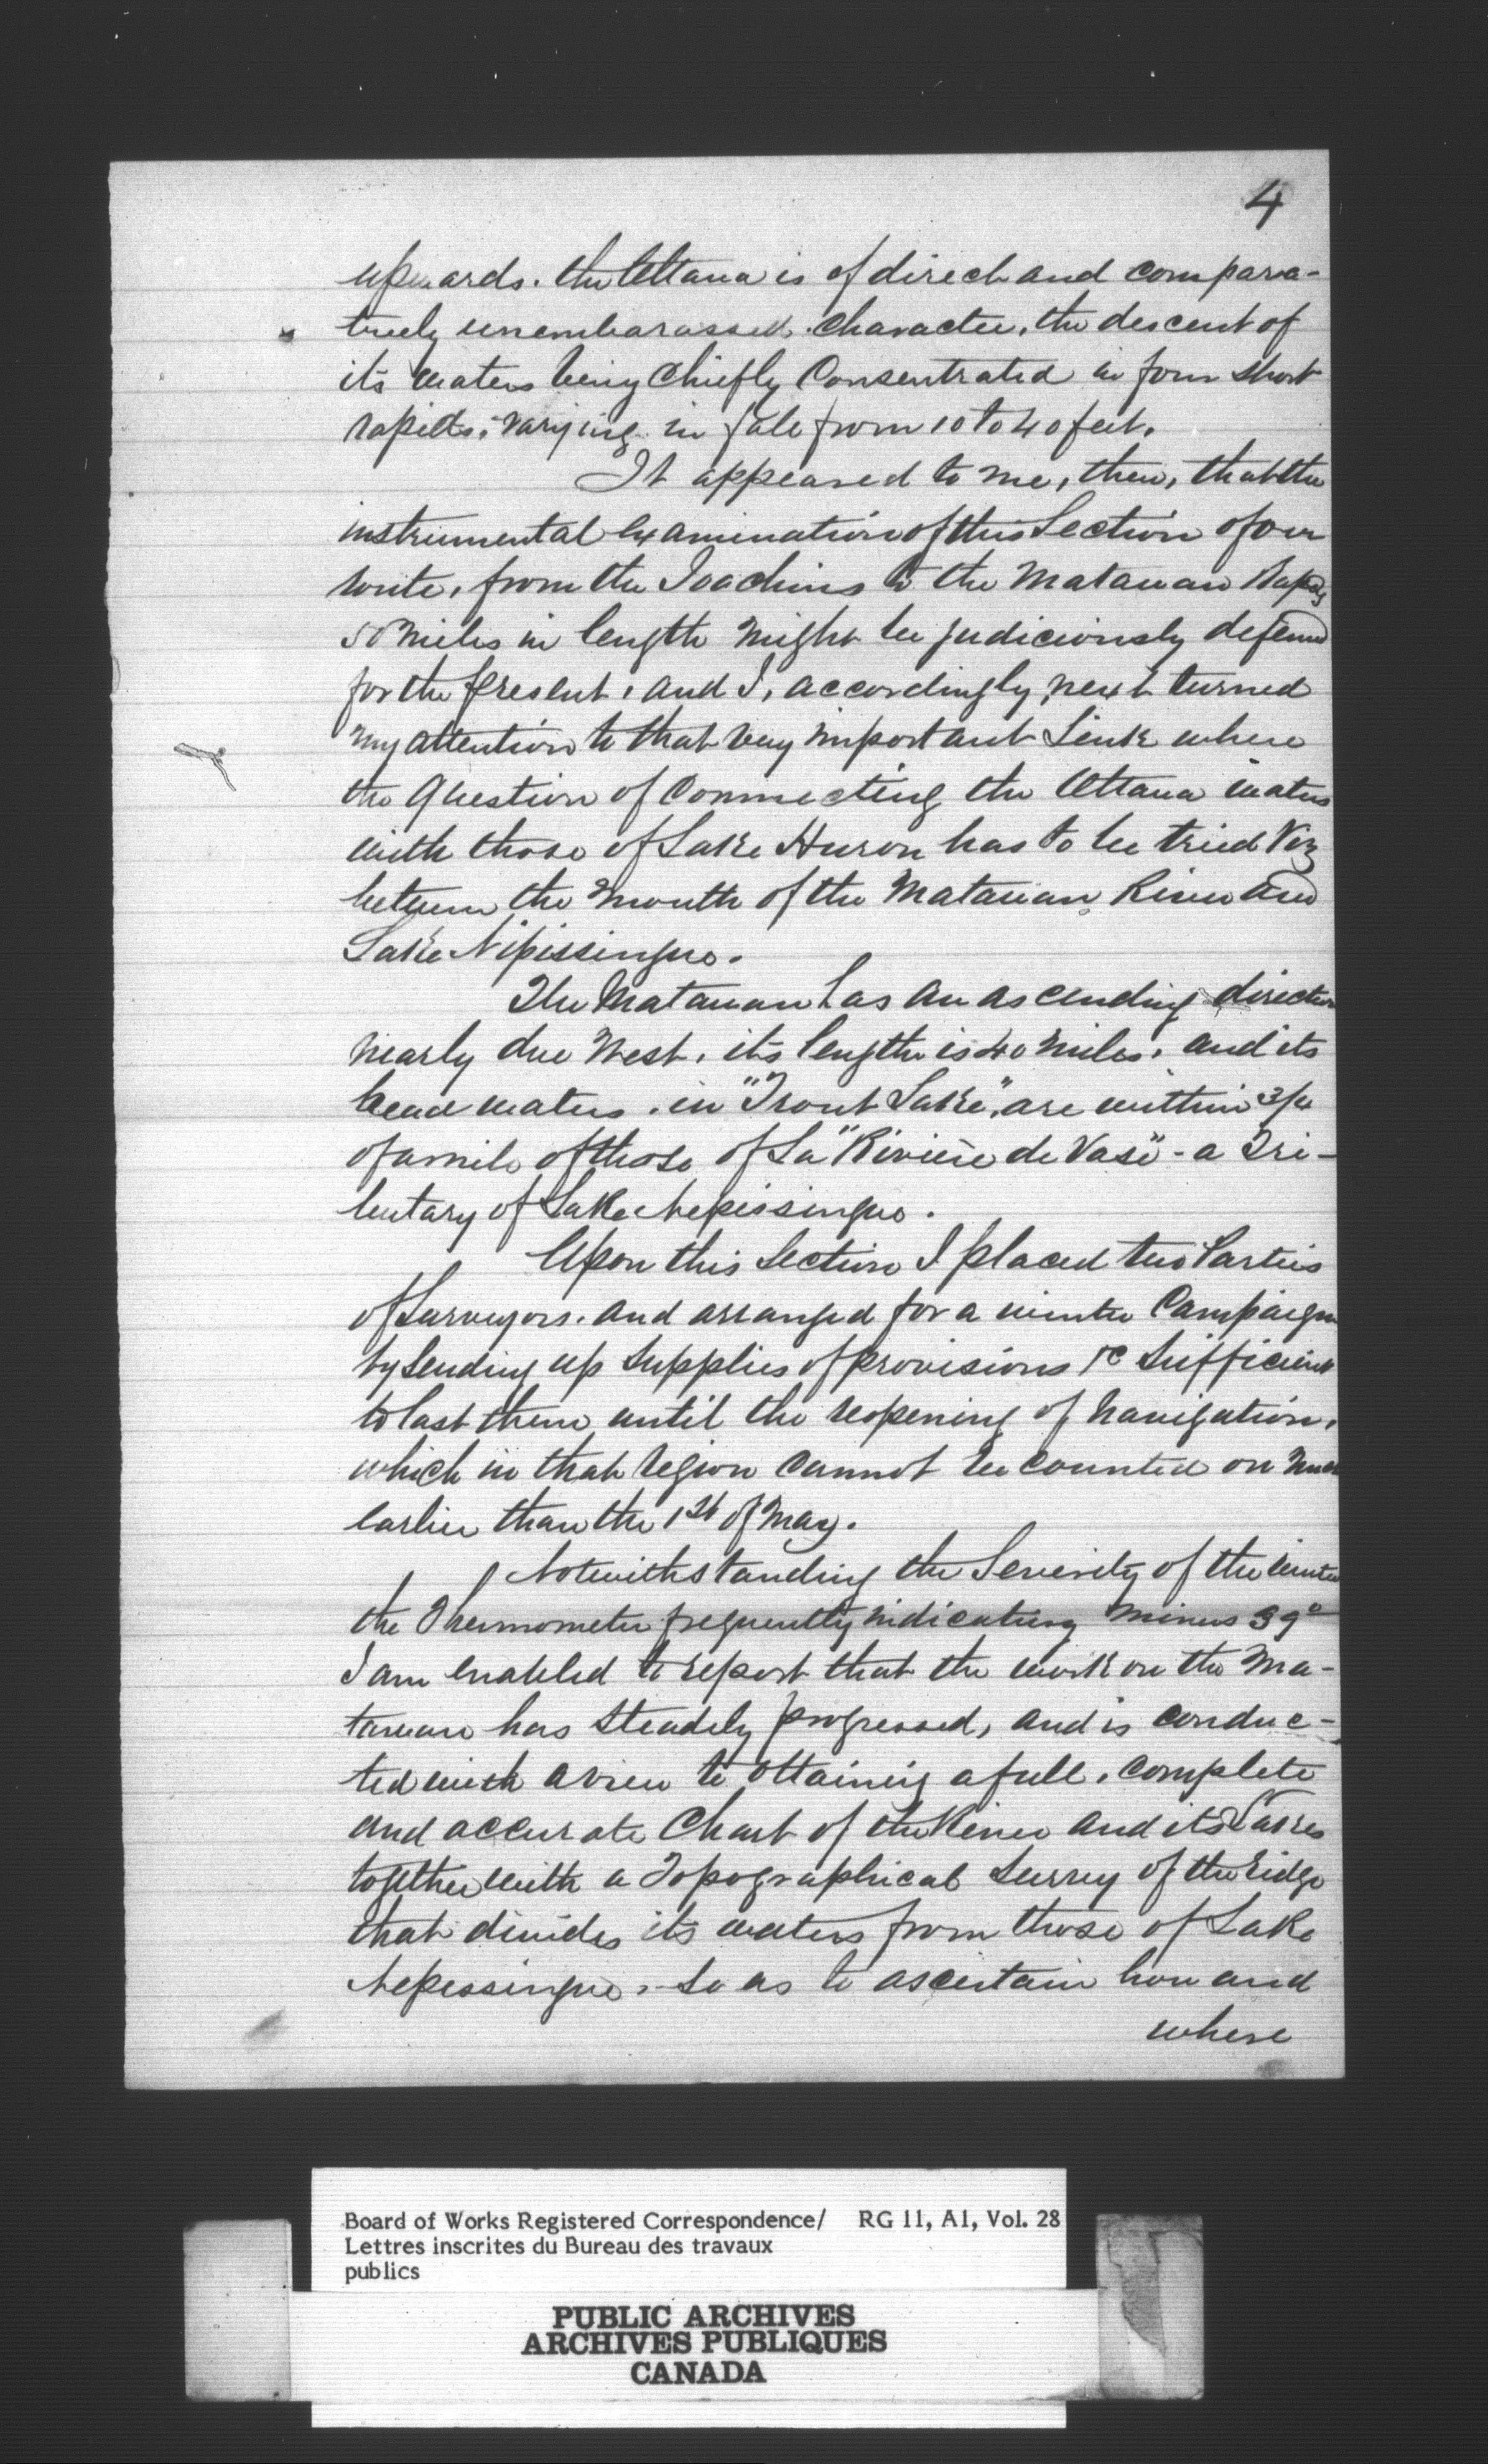 4
upwards. the Ottawa is of direct and compara-
tively unembarassed character, the descent of
its waters being chiefly Consentrated in four short
rapids, varying in fale from 10 to 40 feet.
It appeared to me, then, that the
instrumental examination of this Section of our
route, from the Joachins to the Matawan Rapids
50 miles in length might be judiciously deferred
for the present, and I, accordingly, next turned
my attention to that very important Link where
the Question of Connecting the Ottawa waters
with those of Lake Huron has to be tried Viz
between the mouth of the Matawan River and
Lake Nipissingue.
The Matawan has an ascending direction
nearly due West, its length is 40 miles, and its
head waters, in "Trout Lake", are within 3/4
of a mile of those of La "Riviere de Vase" - a Tri-
butary of Lake Nepissingue.
Upon this Section I placed two Parties
of Surveyors, and arranged for a winter Campaign
by sending up supplies of provisions &c sufficient
to last them until the reopening of navigation,
which in that region cannot be counted on much
earlier than the 1st of May.
Notwithstanding the Severity of the winter
the Thermometer frequently indicating minus 39°
I am enabled to report that the work on the Ma-
tawan has steadily progressed, and is conduc-
ted with a view to ottaining a full, complete
and accurate Chart of the River and its Lakes
together with a Topographical Survey of the ridge
that divides its waters from those of Lake
Nepissingue, so as to ascertain how and
where
Board of Works Registered Correspondence/ RG 11, A1, Vol. 28
Lettres inscrites du Bureau des travaux
publics
PUBLIC ARCHIVES
ARCHIVES PUBLIQUES
CANADA